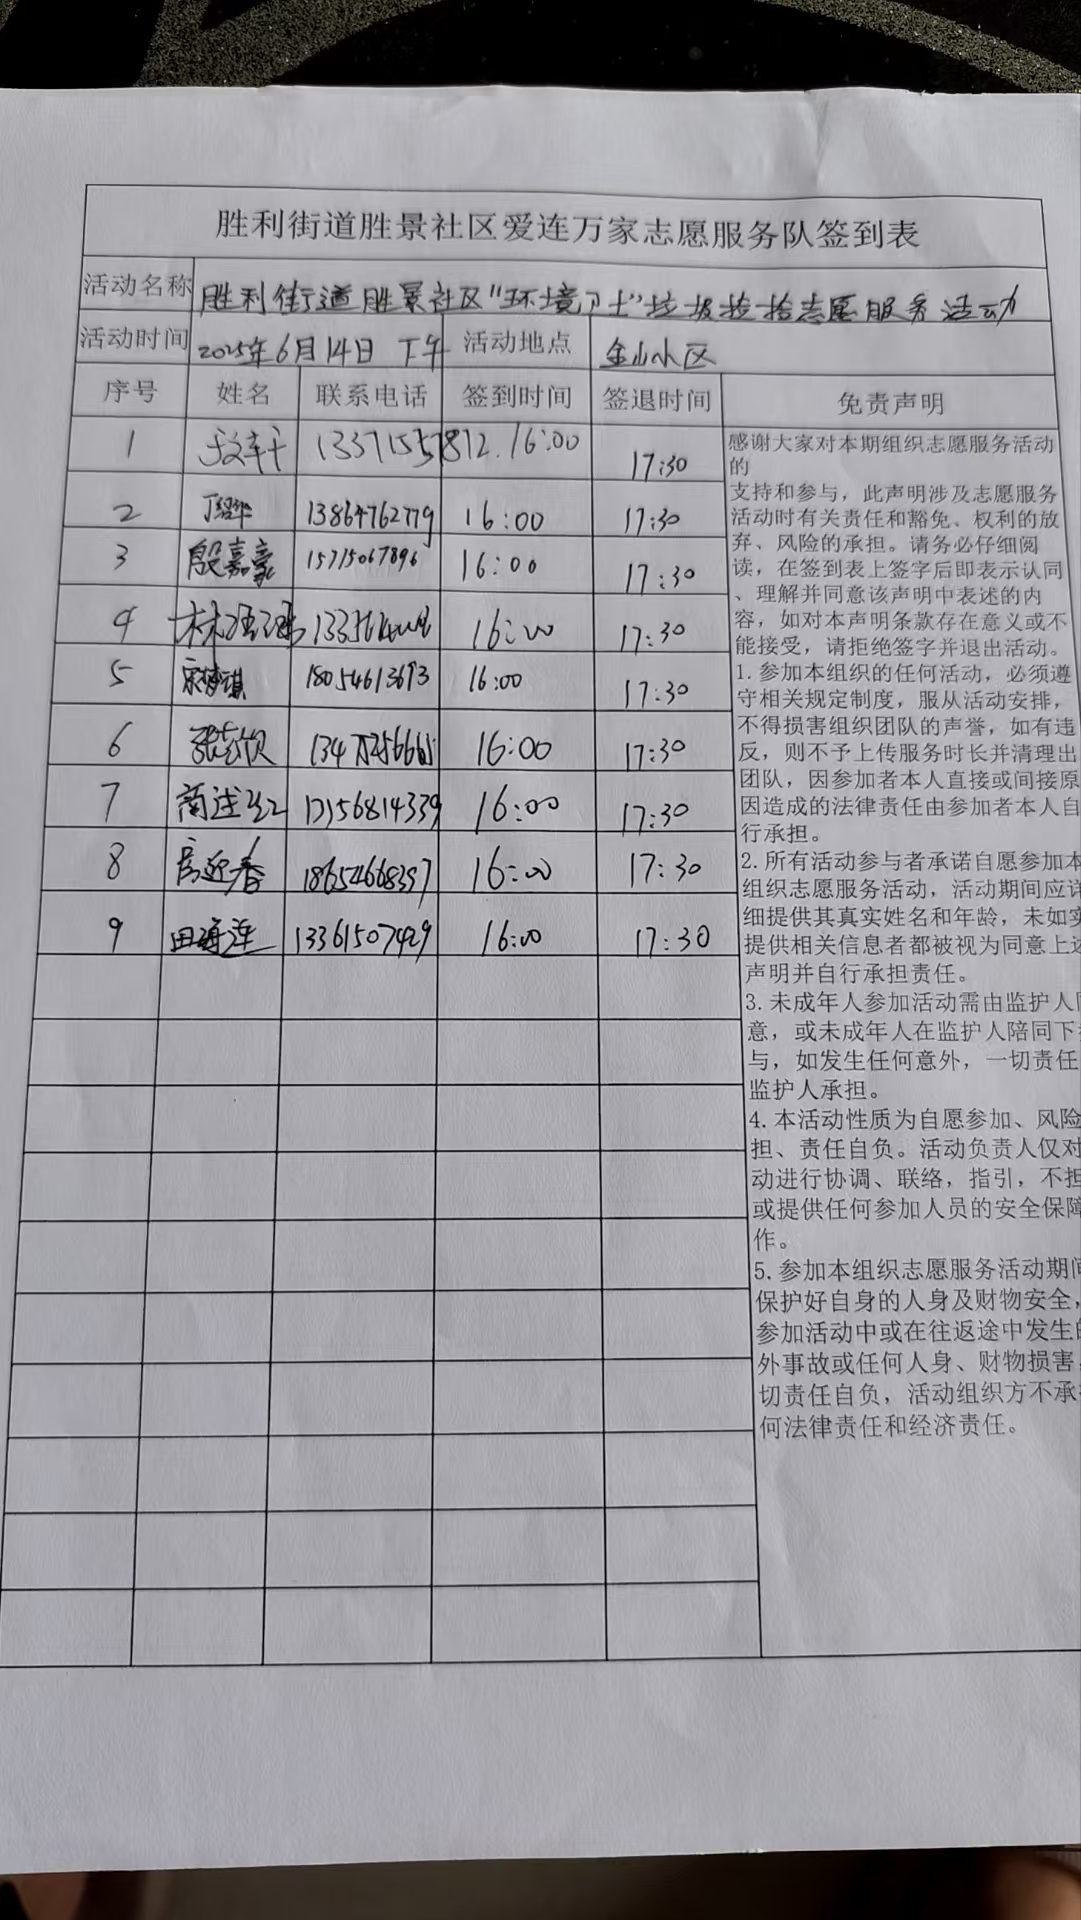 胜利街道胜景社区爱连万家志愿服务队签到表
活动名称 胜利街道胜景社区“环境卫士”垃圾捡拾志愿服务活动
活动时间 2025年6月14日 下午 活动地点 金山小区
序号 姓名 联系电话 签到时间 签退时间 免责声明
1 13371557812. 16:00 17:30
2 13864762779 16:00 17:30
3 殷嘉豪 15715067896 16:00 17:30
4 林 16:00 17:30
5 宋梦琪 18054613673 16:00 17:30
6 16:00 17:30
7 商述红 17156814339 16:00 17:30
8 房迎春 18654668397 16:00 17:30
9 田海莲 13361507429 16:00 17:30
感谢大家对本期组织志愿服务活动
的
支持和参与，此声明涉及志愿服务
活动时有关责任和豁免、权利的放
弃、风险的承担。请务必仔细阅
读，在签到表上签字后即表示认同
、理解并同意该声明中表述的内
容，如对本声明条款存在意义或不
能接受，请拒绝签字并退出活动。
1. 参加本组织的任何活动，必须遵
守相关规定制度，服从活动安排，
不得损害组织团队的声誉，如有违
反，则不予上传服务时长并清理出
团队，因参加者本人直接或间接原
因造成的法律责任由参加者本人自
行承担。
2. 所有活动参与者承诺自愿参加本
组织志愿服务活动，活动期间应详
细提供其真实姓名和年龄，未如实
提供相关信息者都被视为同意上述
声明并自行承担责任。
3. 未成年人参加活动需由监护人
意，或未成年人在监护人陪同下
与，如发生任何意外，一切责任
监护人承担。
4. 本活动性质为自愿参加、风险
担、责任自负。活动负责人仅对
动进行协调、联络，指引，不担
或提供任何参加人员的安全保障
作。
5. 参加本组织志愿服务活动期间
保护好自身的人身及财物安全，
参加活动中或在往返途中发生的
外事故或任何人身、财物损害
切责任自负，活动组织方不承
何法律责任和经济责任。